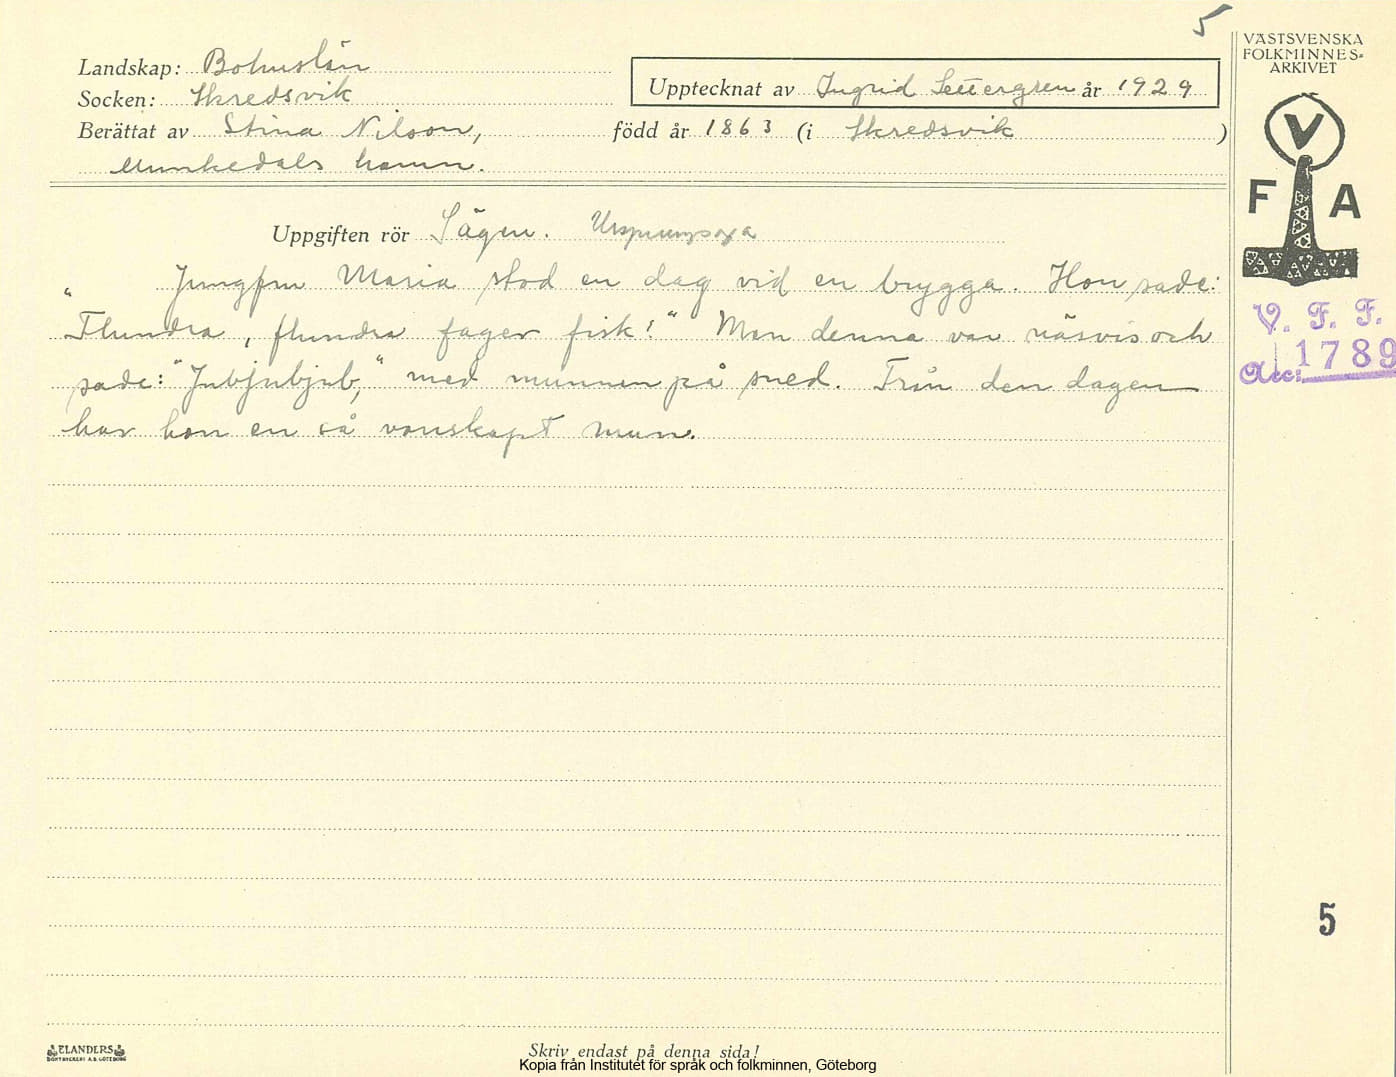 5
VÄSTSVENSKA
FOLKMINNES-
ARKIVET
Landskap: Bohuslän
Socken: Skredsvik
Upptecknat av Ingrid Settergren år 1929
Berättat av Stina Nilson, född år 1863 (i Skredsvik )
Munkedals hamn.
V
F A
Uppgiften rör Sägen.
Jungfru Maria stod en dag vid en brygga. Hon sade:
"Flundra, flundra fager fisk!" Men denna var näsvis och
sade: "Jubjubjub," med munnen på sned. Från den dagen
har hon en så vanskapt mun.
V. F. F.
Acc: 1789
5
ELANDERS
BOKTRYCKERI A.B. GÖTEBORG
Skriv endast på denna sida!
Kopia från Institutet för språk och folkminnen, Göteborg